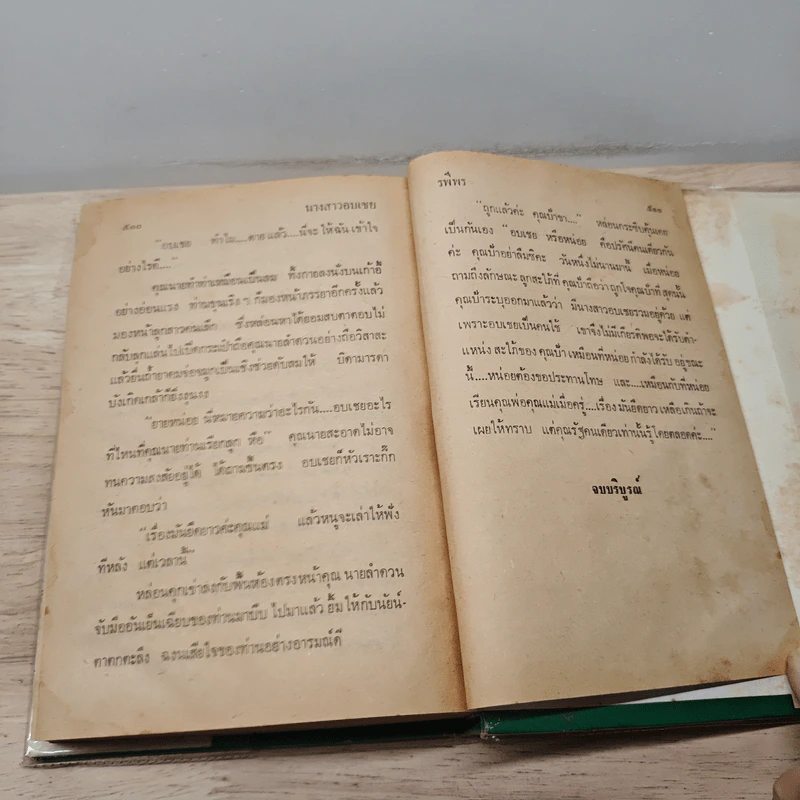 ๕๓๐ นางสาวอบเชย
"อบเชย ทำไม....ตายแล้ว....นี่จะให้ฉันเข้าใจ
อย่างไรดี...."
คุณนายทำท่าเหมือนเป็นลม ทิ้งกายลงนั่งบนเก้าอี้
อย่างอ่อนแรง ท่านขุนเริงฯ ก็มองหน้าภรรยาอีกครั้งแล้ว
มองหน้าลูกสาวคนเล็ก ซึ่งหล่อนหาได้ยอมสบตาตอบไม่
กลับลุกแล่นไปเปิดกระเป๋าถือคุณนายลำดวนอย่างถือวิสาสะ
แล้วยื่นถ้ายาดมจ่อจมูกเป็นเชิงช่วยดับลมให้ บิดามารดา
บังเกิดเกล้าก็ยิ่งงุนงง
"ยายหน่อย นี่หมายความว่าอะไรกัน....อบเชยอะไร
ที่ไหนที่คุณนายท่านเรียกลูก หือ" คุณนายสะอาดไม่อาจ
ทนความสงสัยอยู่ได้ ได้ถามขึ้นตรง อบเชยก็หัวเราะกิ๊ก
หันมาตอบว่า
"เรื่องมันยืดยาวค่ะคุณแม่ แล้วหนูจะเล่าให้ฟัง
ทีหลัง แต่เวลานี้"
หล่อนคุกเข่าลงกับพื้นห้องตรงหน้าคุณนายลำดวน
จับมืออันเย็นเฉียบของท่านมาบีบไปมาแล้วยิ้มให้กับนัยน์-
ตาตกตะลึง ฉงนเสียใจของท่านอย่างอารมณ์ดี
รพีพร ๕๓๑
"ถูกแล้วค่ะ คุณป้าขา...." หล่อนกระซิบคุ้นเคย
เป็นกันเอง "อบเชย หรือหน่อย คือปรัศนีคนเดียวกัน
ค่ะ คุณป้าอย่าลืมซิคะ วันหนึ่งไม่นานมานี้ เมื่อหน่อย
ถามถึงลักษณะลูกสะใภ้ที่คุณป้าถือว่าถูกใจคุณป้าที่สุดนั้น
คุณป้าระบุออกมาแล้วว่า มีนางสาวอบเชยรวมอยู่ด้วย แต่
เพราะอบเชยเป็นคนใช้ เขาจึงไม่มีเกียรติพอจะได้รับตำ-
แหน่งสะใภ้ของคุณป้า เหมือนที่หน่อยกำลังได้รับอยู่ขณะ
นี้....หน่อยต้องขอประทานโทษ และ....เหมือนกับที่หน่อย
เรียนคุณพ่อคุณแม่เมื่อครู่....เรื่องมันยืดยาวเหลือเกินถ้าจะ
เผยให้ทราบ แต่คุณรัฐคนเดียวเท่านั้นรู้โดยตลอดค่ะ...."
จบบริบูรณ์